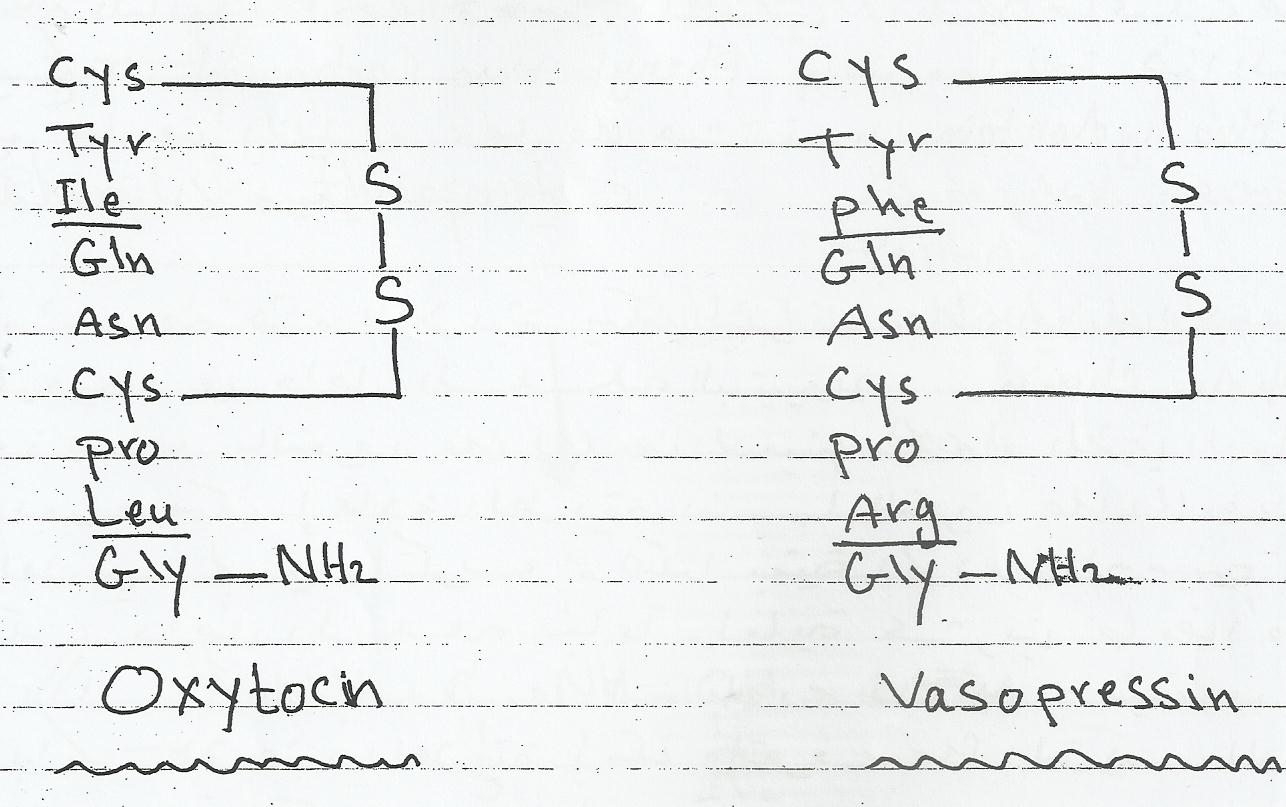 Cys
Tyr
Ile
Gln
Asn
Cys
pro
Leu
Gly - NH2
S
S
Oxytocin
Cys
Tyr
phe
Gln
Asn
Cys
pro
Arg
Gly - NH2
S
S
Vasopressin